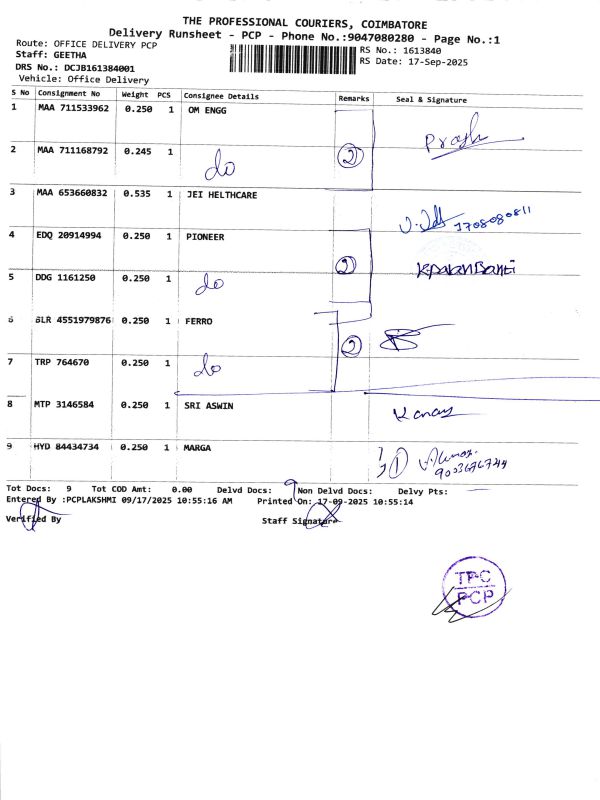 THE PROFESSIONAL COURIERS, COIMBATORE
Delivery Runsheet - PCP - Phone No.:9047080280 - Page No.:1
Route: OFFICE DELIVERY PCP
Staff: GEETHA
DRS No.: DCJB161384001
Vehicle: Office Delivery
RS No.: 1613840
RS Date: 17-Sep-2025
S No Consignment No Weight PCS Consignee Details Remarks Seal & Signature
1 MAA 711533962 0.250 1 OM ENGG
2 MAA 711168792 0.245 1 do 2
3 MAA 653660832 0.535 1 JEI HELTHCARE
4 EDQ 20914994 0.250 1 PIONEER
5 DDG 1161250 0.250 1 do 2
6 BLR 4551979876 0.250 1 FERRO
7 TRP 764670 0.250 1 do 2
8 MTP 3146584 0.250 1 SRI ASWIN
9 HYD 84434734 0.250 1 MARGA
Tot Docs: 9 Tot COD Amt: 0.00 Delvd Docs: 9 Non Delvd Docs: Delvy Pts:
Entered By :PCPLAKSHMI 09/17/2025 10:55:16 AM Printed On: 17-09-2025 10:55:14
Verified By Staff Signature
TPC
PCP